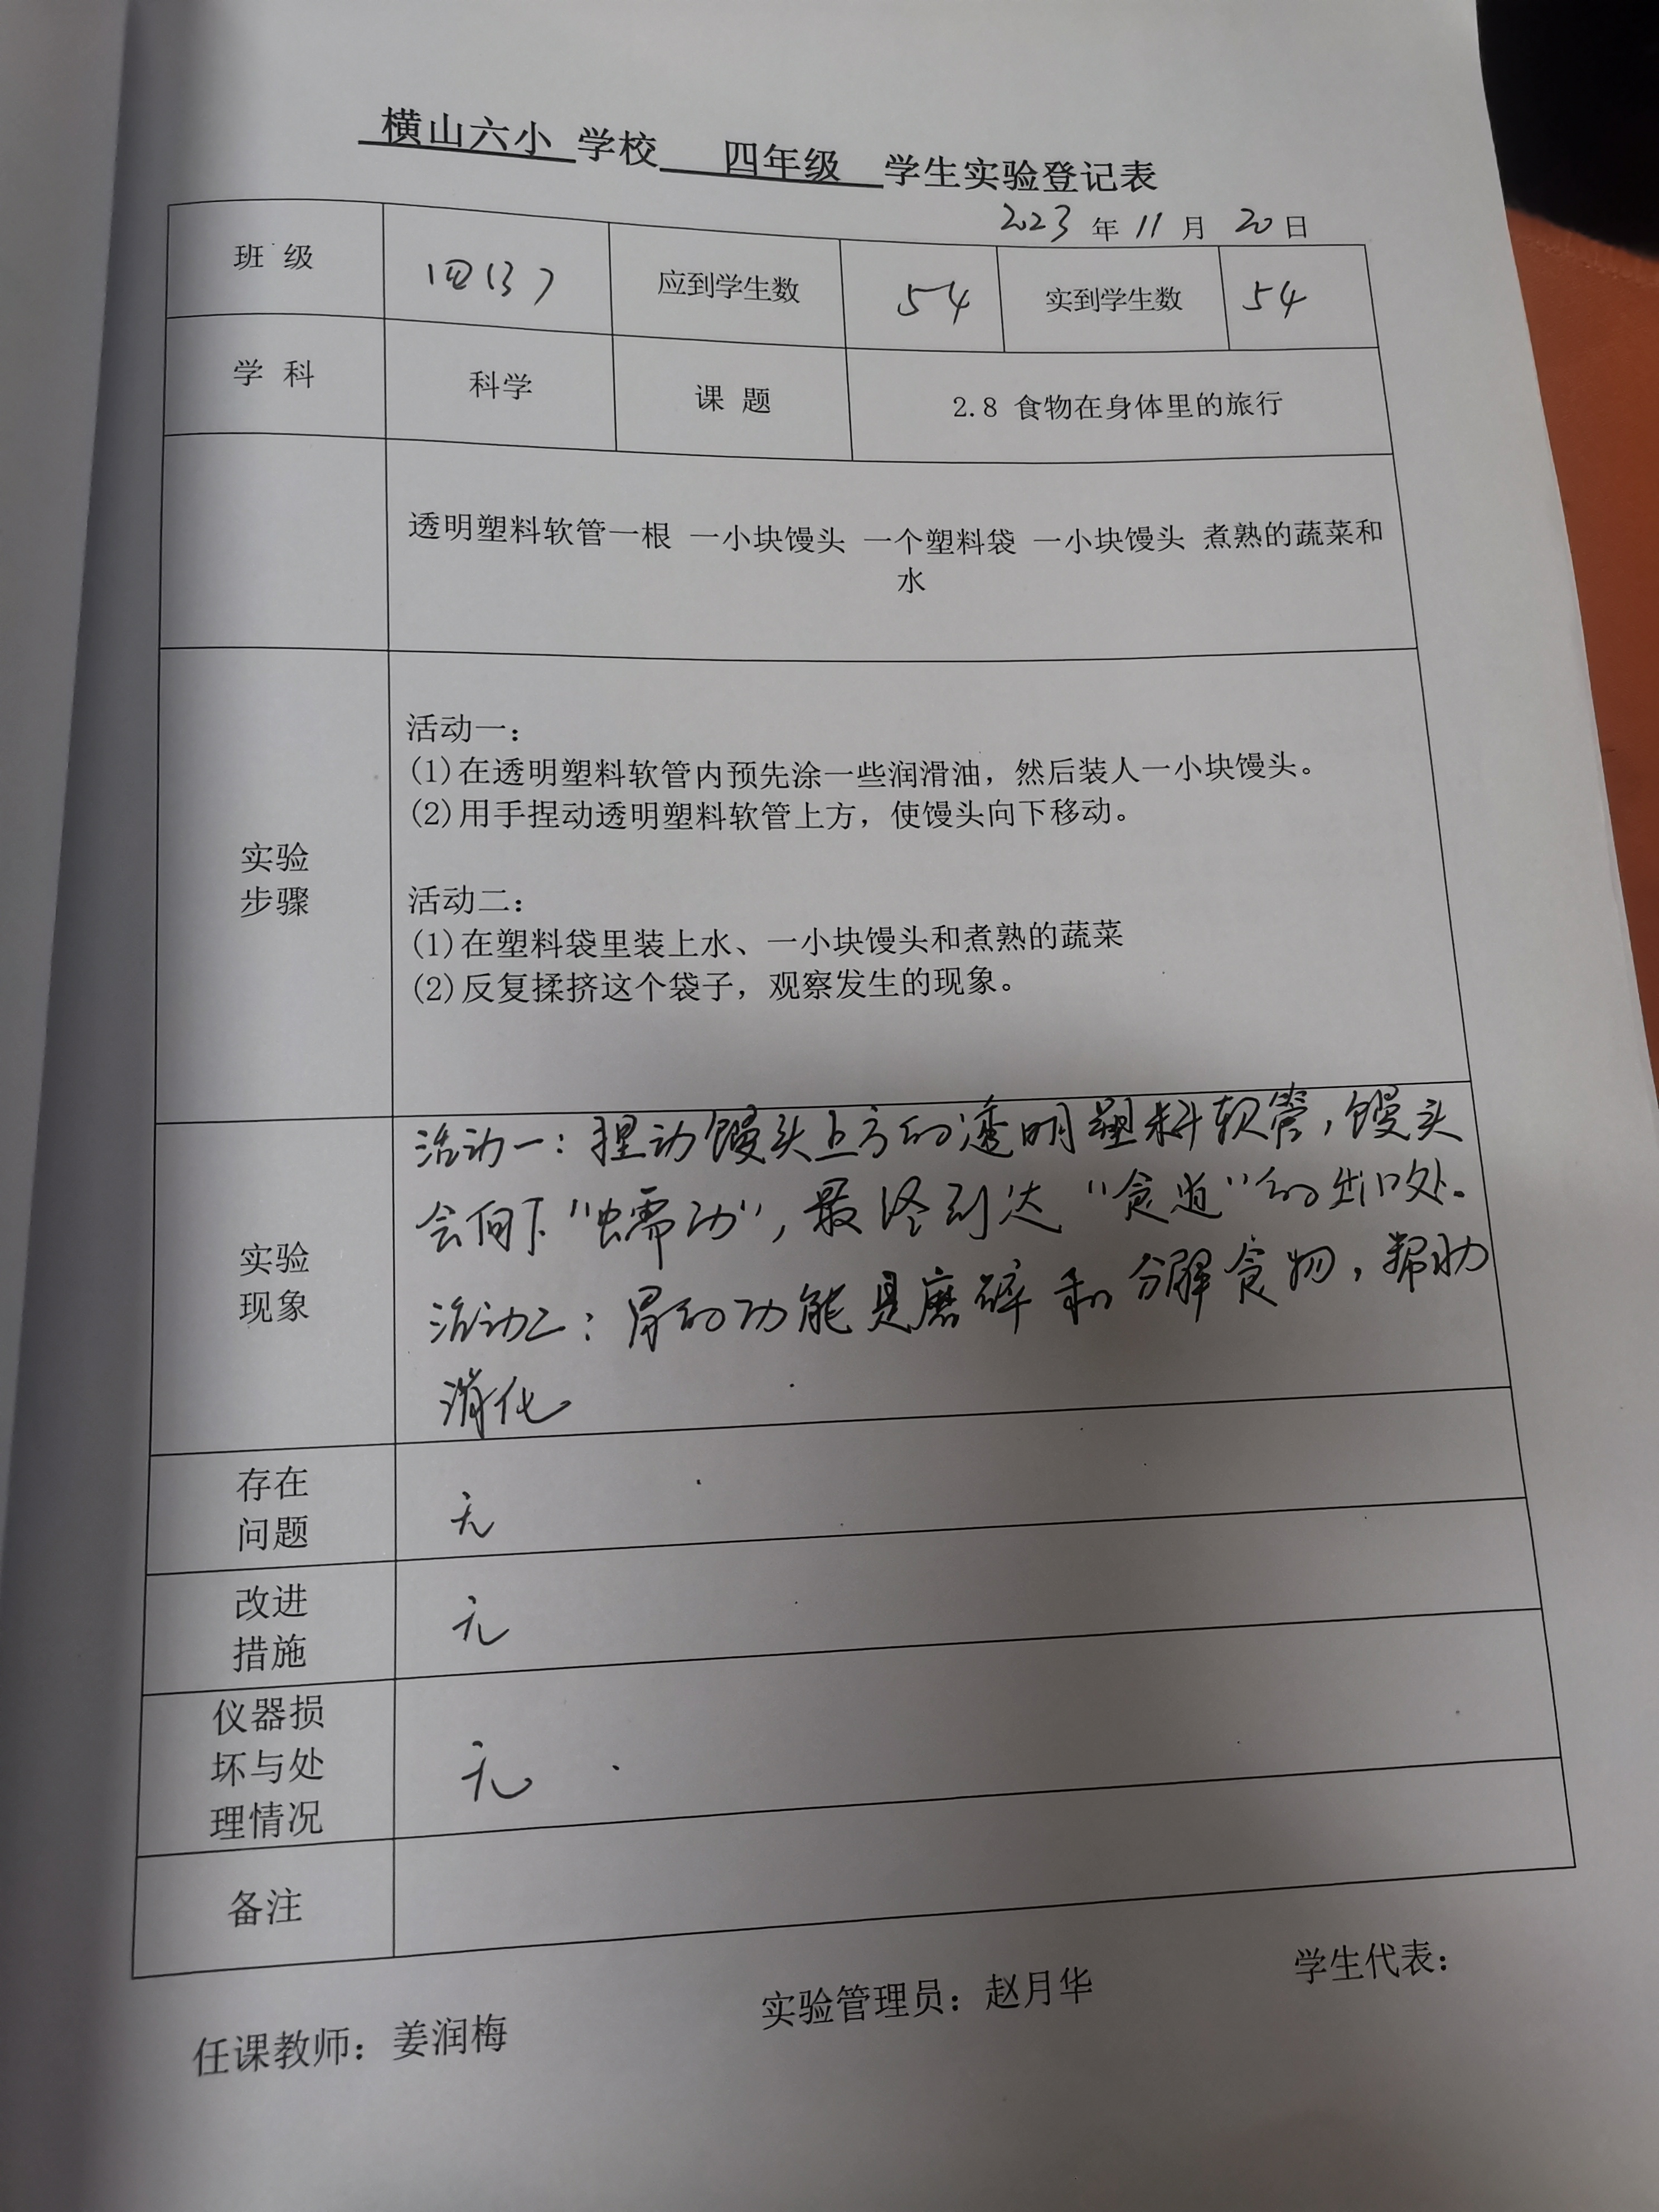 横山六小 学校 四年级 学生实验登记表
2023 年 11 月 20 日
班 级 四(3) 应到学生数 54 实到学生数 54
学 科 科学 课 题 2.8 食物在身体里的旅行
透明塑料软管一根 一小块馒头 一个塑料袋 一小块馒头 煮熟的蔬菜和
水
实验
步骤
活动一：
(1)在透明塑料软管内预先涂一些润滑油，然后装人一小块馒头。
(2)用手捏动透明塑料软管上方，使馒头向下移动。
活动二：
(1)在塑料袋里装上水、一小块馒头和煮熟的蔬菜
(2)反复揉挤这个袋子，观察发生的现象。
实验
现象
活动一：捏动馒头上方的透明塑料软管，馒头
会向下“蠕动”，最终到达“食道”的出口处。
活动二：胃的功能是磨碎和分解食物，帮助
消化
存在
问题
无
改进
措施
无
仪器损
坏与处
理情况
无
备注
任课教师：姜润梅 实验管理员：赵月华 学生代表：